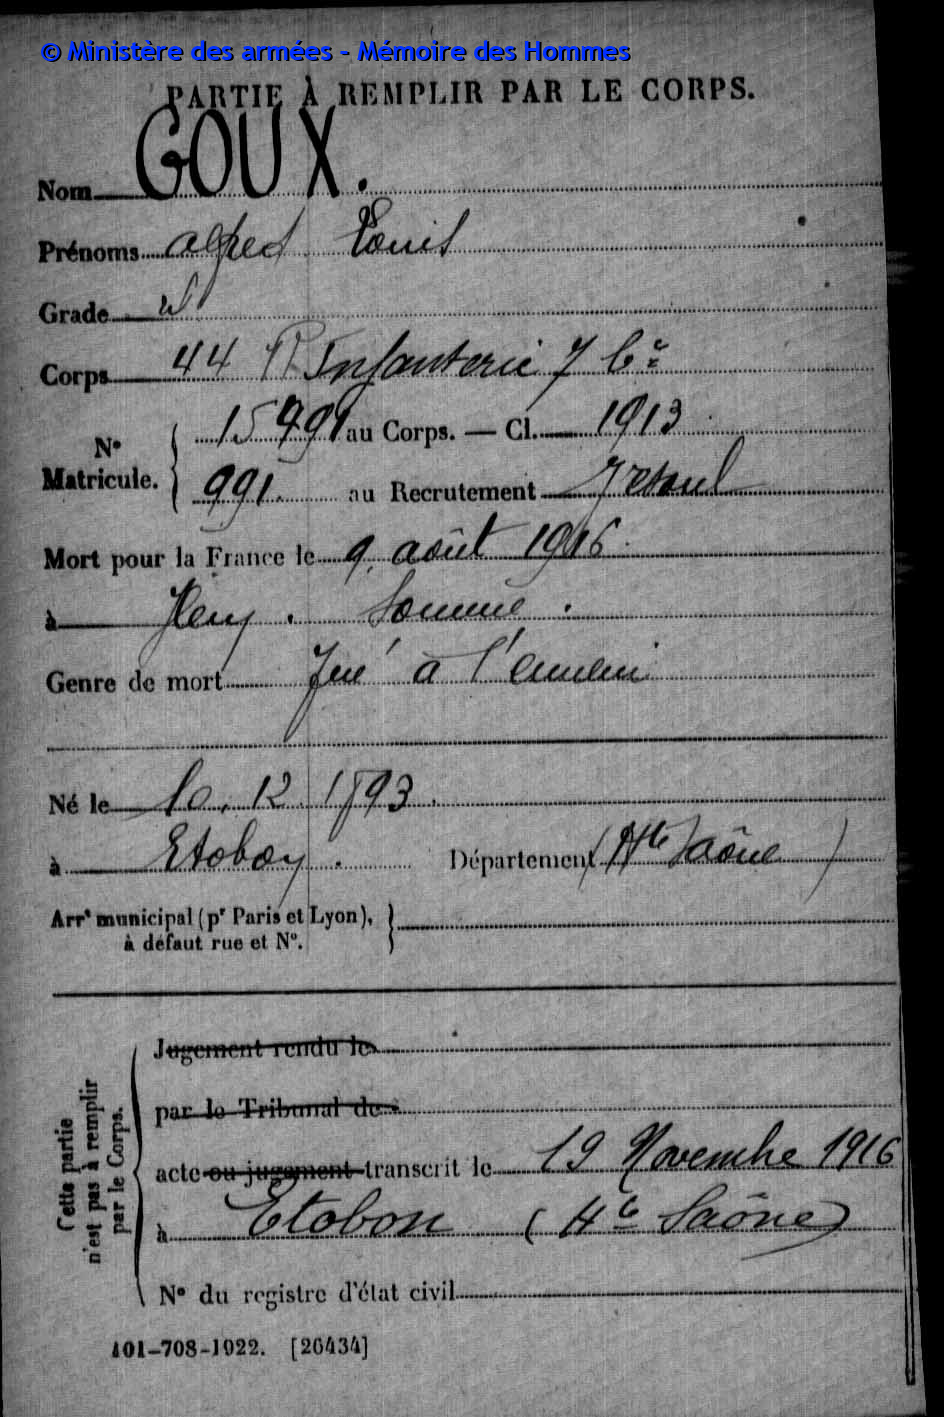 © Ministère des armées - Mémoire des Hommes
PARTIE À REMPLIR PAR LE CORPS.
Nom GOUX.
Prénoms Alfred Louis
Grade
Corps 44 R Infanterie 7 Cie
N° Matricule. 15991 au Corps. — Cl. 1913
991. au Recrutement Vesoul
Mort pour la France le 9 août 1916
à Hem. Somme.
Genre de mort Tué à l'ennemi
Né le 10. 12. 1893.
à Etobon. Département (Hte Saône)
Arrt municipal (pr Paris et Lyon),
à défaut rue et N°.
Cette partie
n'est pas à remplir
par le Corps.
Jugement rendu le
par le Tribunal de
acte ou jugement transcrit le 19 Novembre 1916
à Etobon (Hte Saône)
N° du registre d'état civil
101-708-1922. [26434]